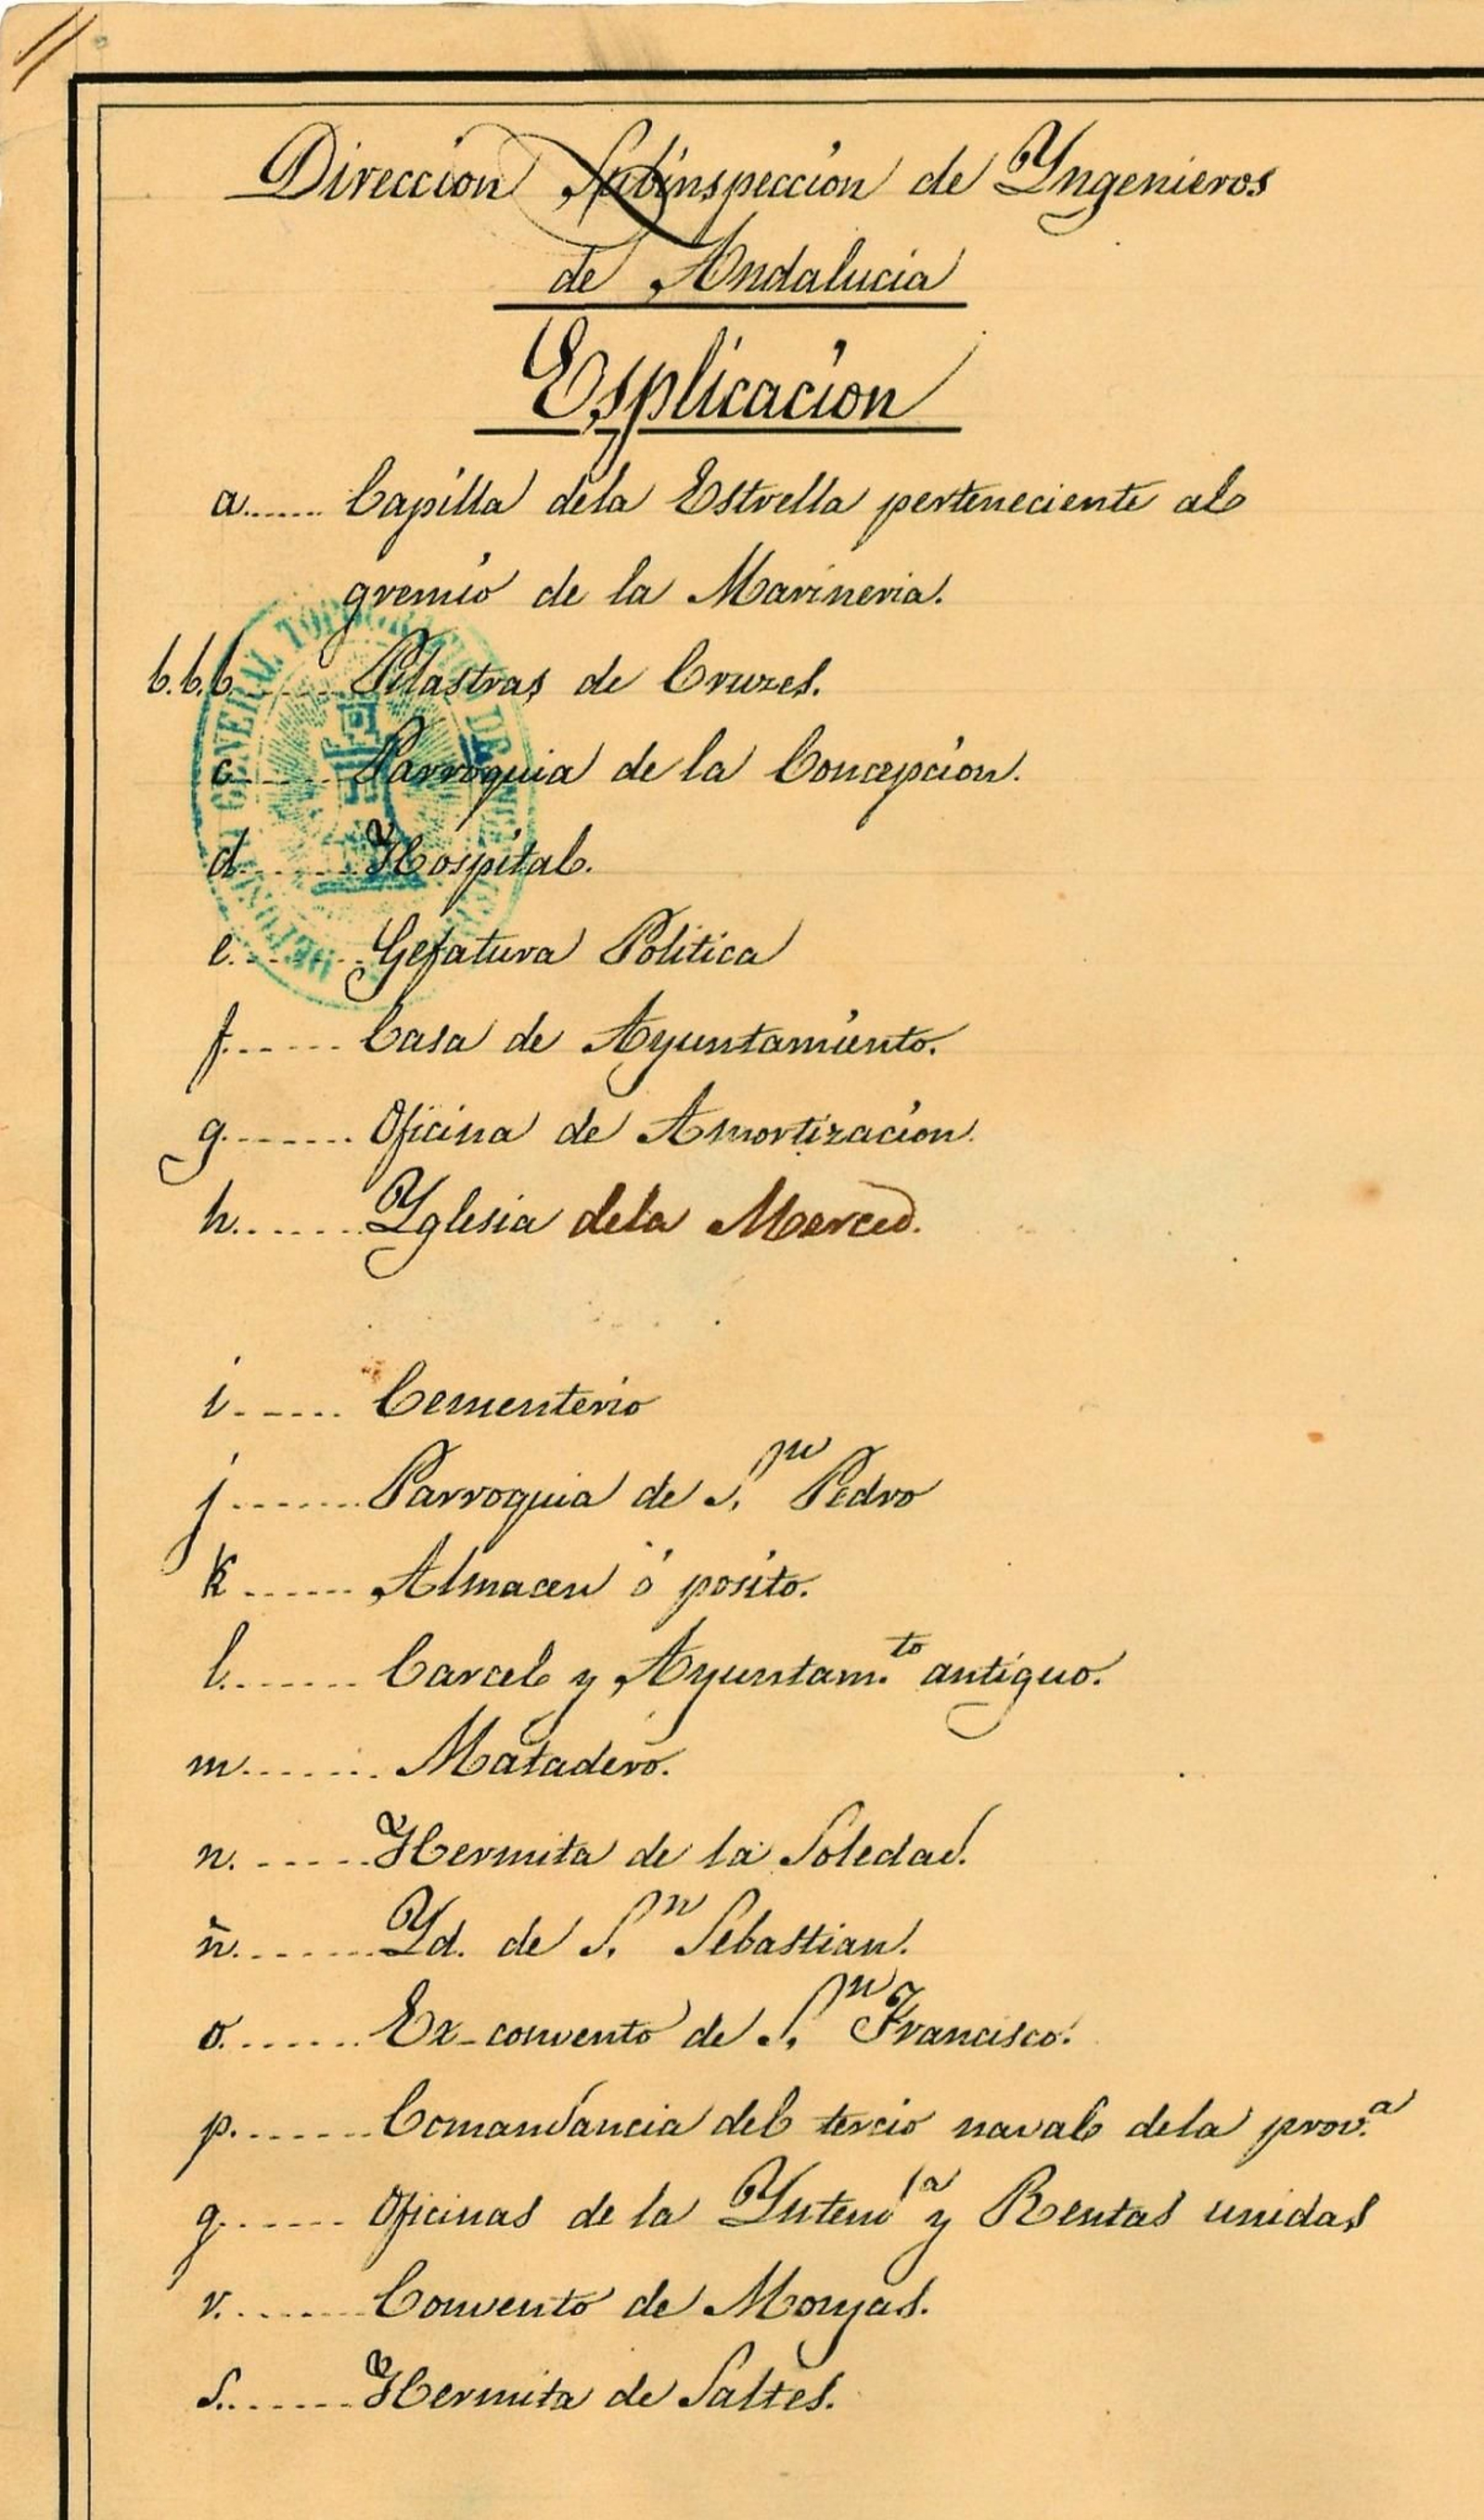 Direccion Subinspeccion de Yngenieros
de Andalucia
Esplicacion
a...... Capilla dela Estrella perteneciente al
gremio de la Marineria.
b.b.b. ..... Pilastras de Cruzes.
c...... Parroquia de la Concepcion.
d...... Hospital.
e....... Gefatura Politica
f...... Casa de Ayuntamiento.
g....... Oficina de Amortizacion.
h....... Yglesia dela Merced.
i...... Cementerio
j....... Parroquia de S.n Pedro
k...... Almacen ó posito.
l....... Carcel y Ayuntam.to antiguo.
m....... Matadero.
n...... Hermita de la Soledad.
ñ....... Yd. de S.n Sebastian.
o....... Ex-convento de S.n Francisco.
p....... Comandancia del tercio naval dela prov.a
q...... Oficinas de la Yntend.a y Rentas unidas
r....... Convento de Monjas.
s....... Hermita de Saltes.
GENERAL TOPOGRAFICO DE
DEPOSITO